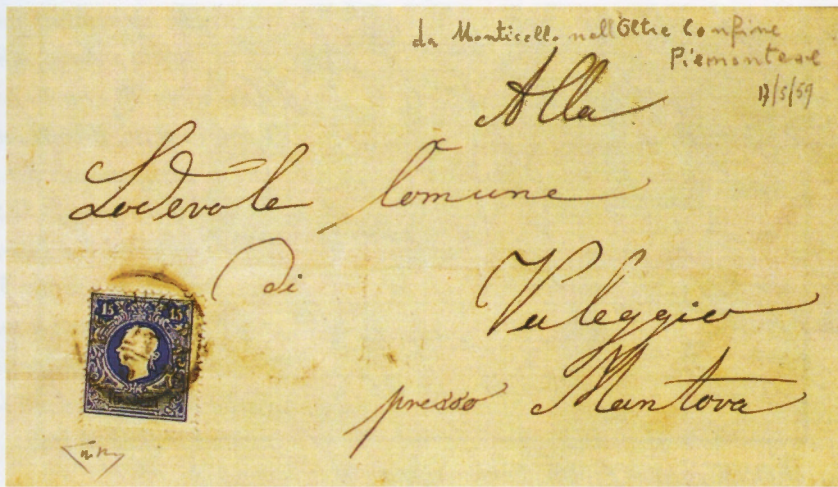 da Monticello nell'Oltre Confine
Piemontese
17/5/59
Alla
Lodevole Comune
di
Valeggio
presso Mantova
15 15